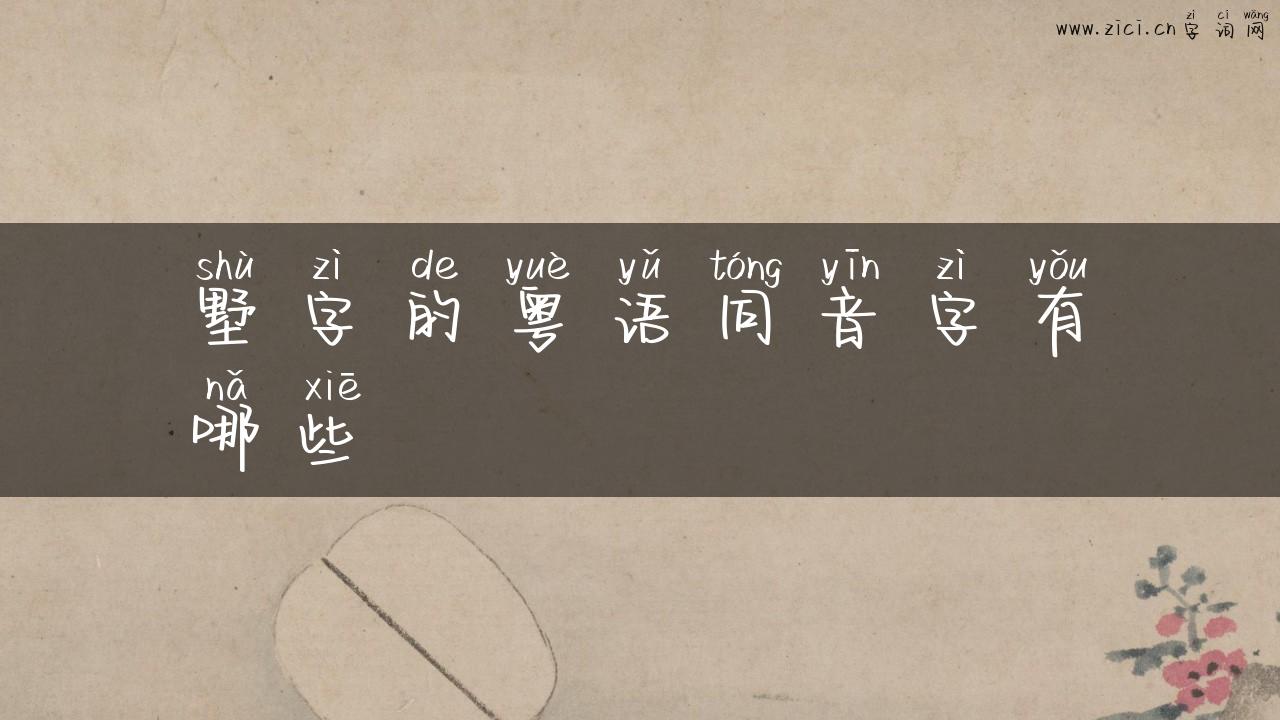 zì cí wǎng
www.zici.cn 字词网
shù zì de yuè yǔ tóng yīn zì yǒu
墅字的粤语同音字有
nǎ xiē
哪些